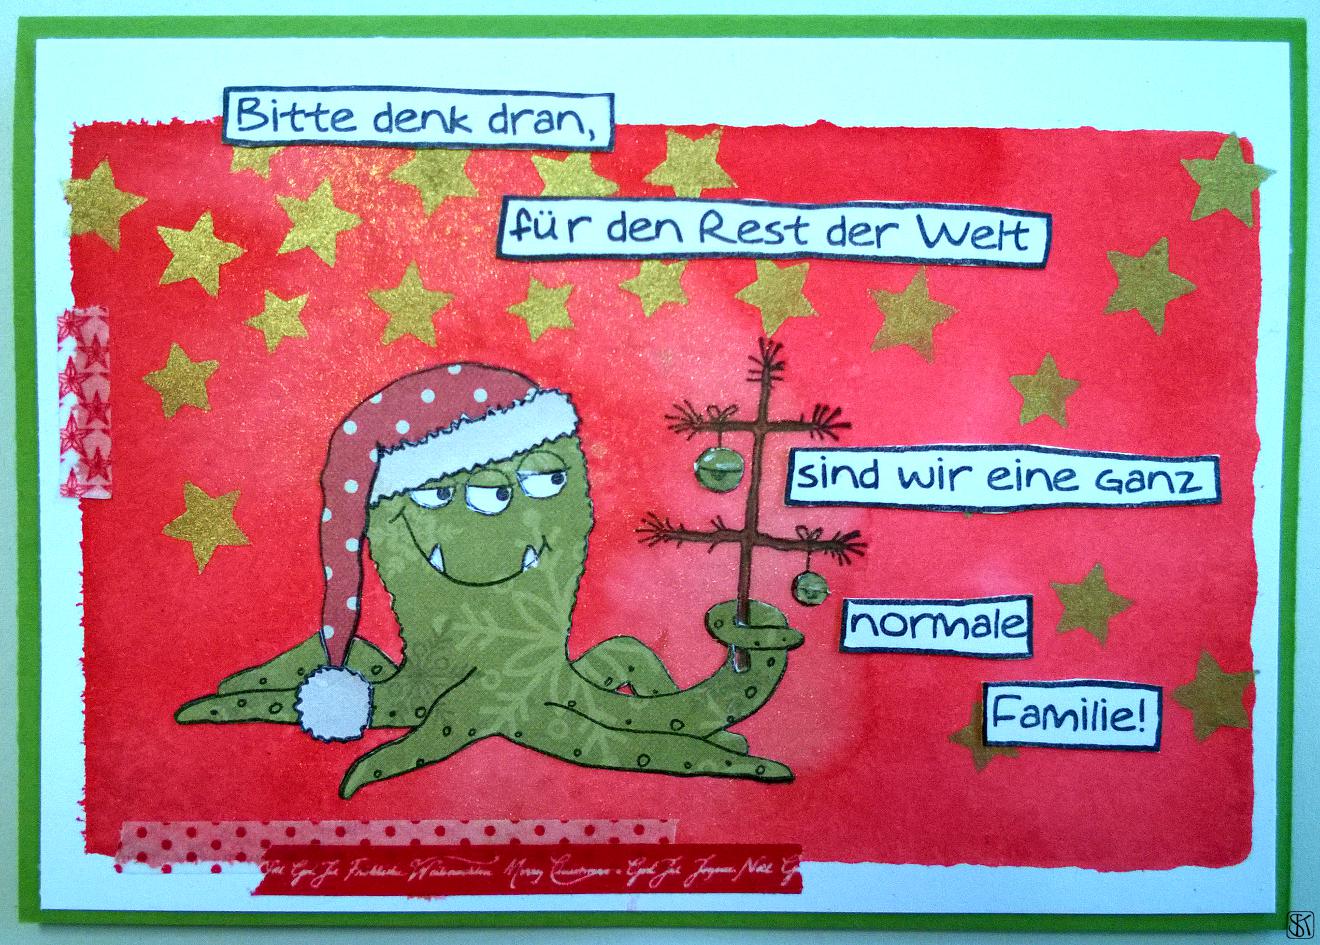 Bitte denk dran,
für den Rest der Welt
sind wir eine ganz
normale
Familie!
God Jul Fröhliche Weihnachten Merry Christmas God Jul Joyeux Noël